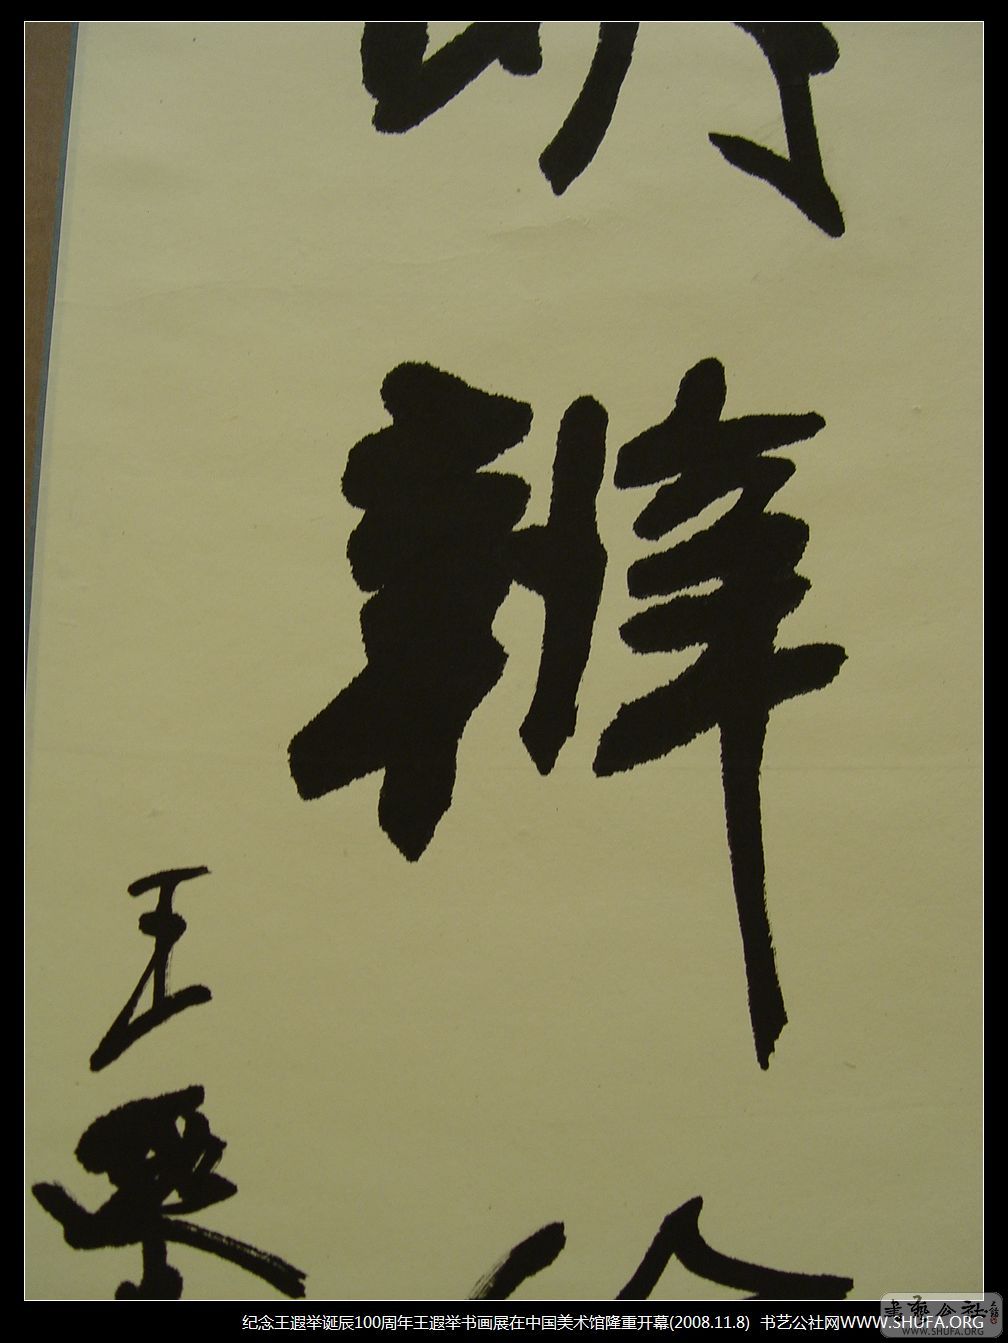 明辨
王
纪念王遐举诞辰100周年王遐举书画展在中国美术馆隆重开幕(2008.11.8) 书艺公社网WWW.SHUFA.ORG
書艺公社
WWW.SHUFA.ORG